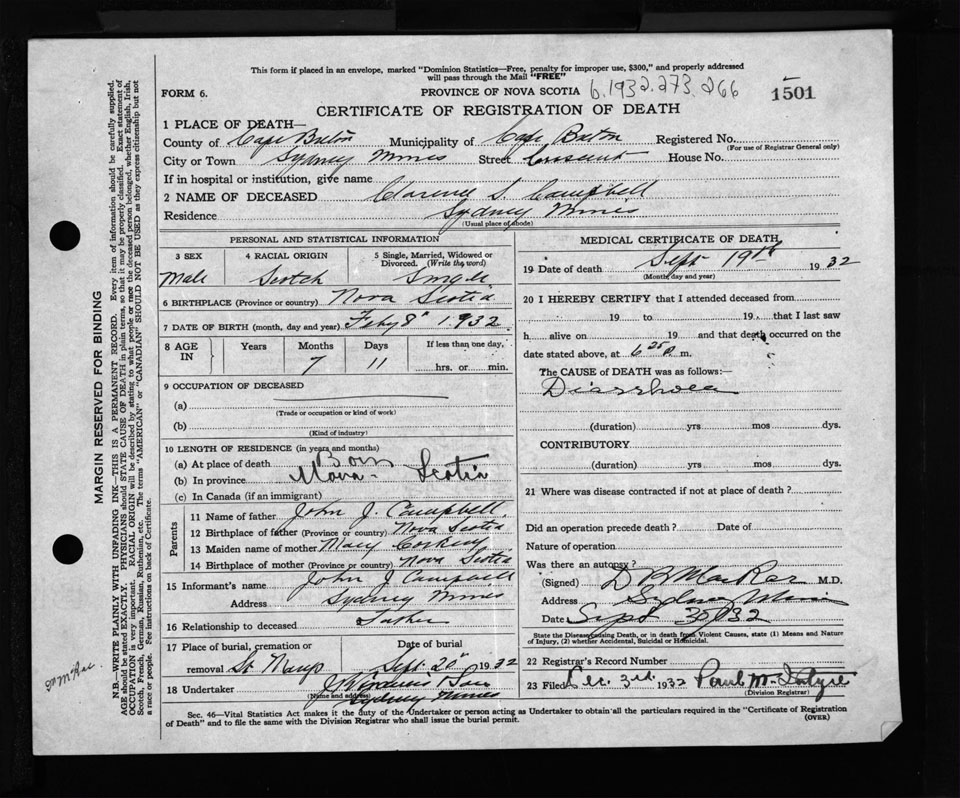 This form if placed in an envelope, marked "Dominion Statistics—Free, penalty for improper use, $300," and properly addressed
will pass through the Mail "FREE"
FORM 6.
PROVINCE OF NOVA SCOTIA 6.1932.273.266
1501
CERTIFICATE OF REGISTRATION OF DEATH
1 PLACE OF DEATH—
County of Cape Breton Municipality of Cape Breton Registered No.
(For use of Registrar General only)
City or Town Sydney Mines Street Crescent House No.
If in hospital or institution, give name
2 NAME OF DECEASED Clarence S. Campbell
Residence Sydney Mines
(Usual place of abode)
PERSONAL AND STATISTICAL INFORMATION
3 SEX 4 RACIAL ORIGIN 5 Single, Married, Widowed or
Divorced. (Write the word)
Male Scotch Single
6 BIRTHPLACE (Province or country) Nova Scotia
7 DATE OF BIRTH (month, day and year) Feby 8th 1932
8 AGE IN Years Months Days If less than one day,
7 11 hrs. or min.
9 OCCUPATION OF DECEASED
(a)
(Trade or occupation or kind of work)
(b)
(Kind of industry)
10 LENGTH OF RESIDENCE (in years and months)
(a) At place of death Born
(b) In province Nova Scotia
(c) In Canada (if an immigrant)
Parents
11 Name of father John J. Campbell
12 Birthplace of father (Province or country) Nova Scotia
13 Maiden name of mother Mary
14 Birthplace of mother (Province or country) Nova Scotia
15 Informant's name John J Campbell
Address Sydney Mines
16 Relationship to deceased Father
17 Place of burial, cremation or Date of burial
removal Sept. 20th 1932
18 Undertaker
(Name and address)
Sydney Mines
MEDICAL CERTIFICATE OF DEATH
19 Date of death Sept 19th 1932
(Month, day and year)
20 I HEREBY CERTIFY that I attended deceased from
19 to 19 , that I last saw
h alive on 19 and that death occurred on the
date stated above, at 6 25 m.
The CAUSE of DEATH was as follows:
Diarrhoea
(duration) yrs mos dys.
CONTRIBUTORY
(duration) yrs mos dys.
21 Where was disease contracted if not at place of death?
Did an operation precede death? Date of
Nature of operation
Was there an autopsy?
(Signed) D B MacRae M.D.
Address Sydney Mines
Date Sept 32
State the Disease causing Death, or in death from Violent Causes, state (1) Means and Nature
of Injury, (2) whether Accidental, Suicidal or Homicidal.
22 Registrar's Record Number
23 Filed Dec. 3rd. 1932 Paul McIntyre
(Division Registrar)
Sec. 46—Vital Statistics Act makes it the duty of the Undertaker or person acting as Undertaker to obtain all the particulars required in the "Certificate of Registration
of Death" and to file the same with the Division Registrar who shall issue the burial permit. (OVER)
MARGIN RESERVED FOR BINDING
N.B.—WRITE PLAINLY WITH UNFADING INK—THIS IS A PERMANENT RECORD. Every item of information should be carefully supplied.
AGE should be stated EXACTLY. PHYSICIANS should STATE CAUSE OF DEATH in plain terms, so that it may be properly classified. Exact statement of
OCCUPATION is very important. RACIAL ORIGIN will be described by stating to what people or race the deceased person belonged, whether English, Irish,
Scotch, French, German, Russian, Ruthenian, etc. The terms "AMERICAN" or "CANADIAN" SHOULD NOT BE USED as they express citizenship but not
a race or people. See instructions on back of Certificate.